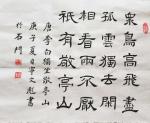 衆鳥高飛盡
孤雲獨去閒
相看兩不厭
祇有敬亭山
唐李白獨坐敬亭山
庚子夏日文彪書
於石門